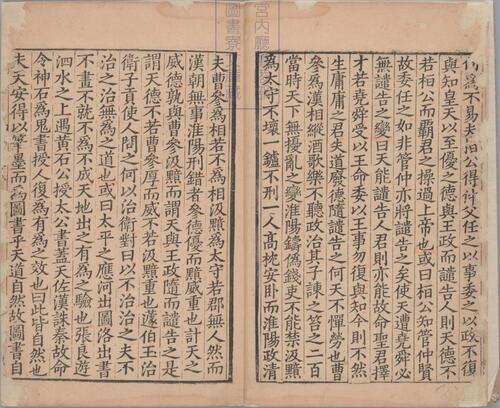 宮内廳
圖書寮
爲不易夫桓公得仲父任之以事委之以政不復
與知皇天以至優之德與王政而譴告人則天德不
若桓公而霸君之操過上帝也或曰桓公知管仲賢
故委任之如非管仲亦將譴告之矣使天遭堯舜必
無譴告之變曰天能譴告人君則亦能故命聖君擇
才若堯舜受以王命委以王事勿復與知今則不然
生庸庸之君失道廢德隨譴告之何天不憚勞也曹
參爲漢相縱酒歌樂不聽政治其子諫之笞之二百
當時天下無擾亂之變淮陽鑄偽錢吏不能禁汲黯
爲太守不壞一鑪不刑一人高枕安卧而淮陽政清
夫曹參爲相若不爲相汲黯爲太守若郡無人然而
漢朝無事淮陽刑錯者參德優而黯威重也計天之
威德孰與曹參汲黯而謂天與王政隨而譴告之是
謂天德不若曹參厚而威不若汲黯重也蘧伯玉治
衛子貢使人問之何以治衛對曰以不治治之夫不
治之治無爲之道也或曰太平之應河出圖洛出書
不畫不就不爲不成天地出之有爲之驗也張良遊
泗水之上遇黃石公授太公書蓋天佐漢誅秦故命
令神石爲鬼書授人復爲有爲之效也曰此皆自然也
夫天安得以筆墨而爲圖書乎天道自然故圖書自